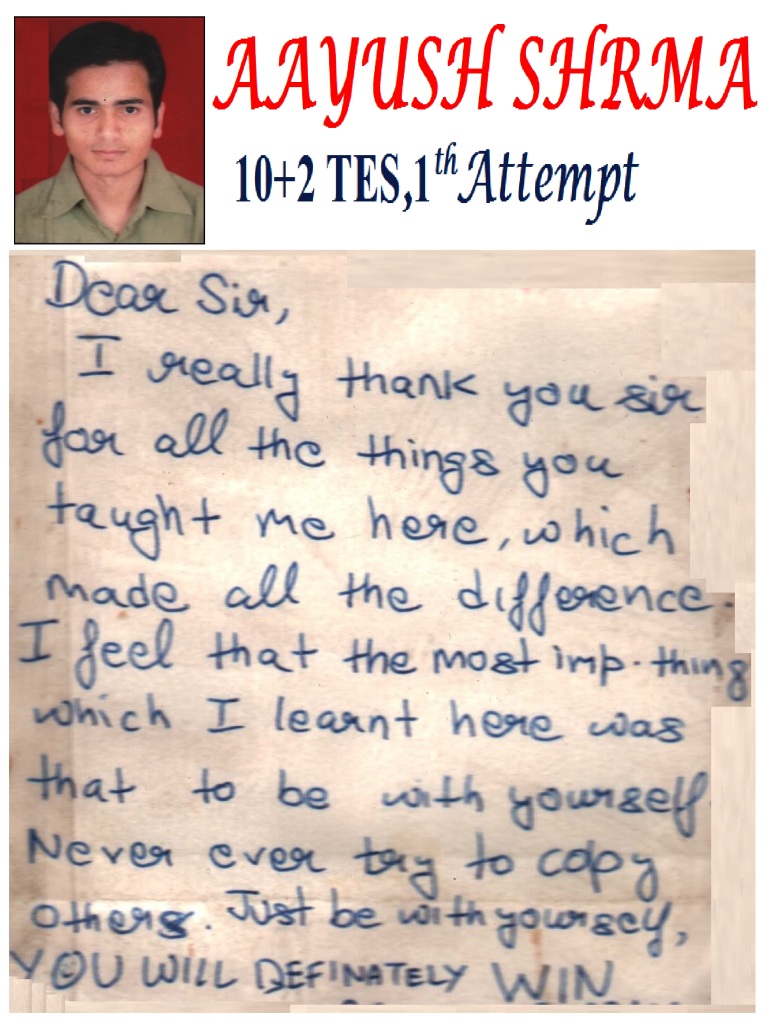 AAYUSH SHRMA
10+2 TES,1th Attempt
Dear Sir,
I really thank you sir
for all the things you
taught me here, which
made all the difference.
I feel that the most imp. thing
which I learnt here was
that to be with yourself
Never ever try to copy
others. Just be with yourself,
YOU WILL DEFINATELY WIN